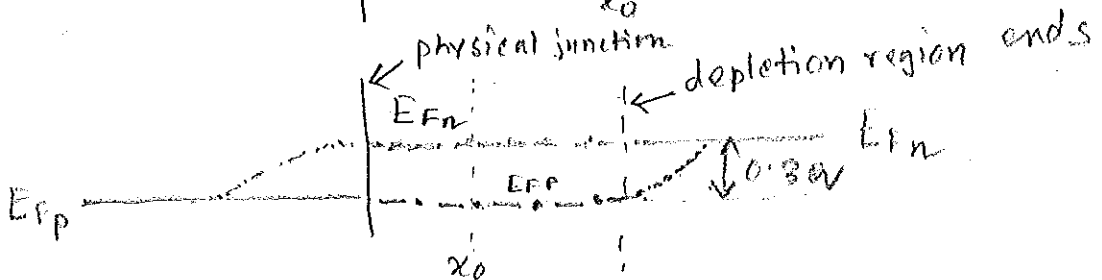 x₀
physical junction
depletion region ends
E_Fn
E_Fn
0.3eV
E_FP
E_Fp
x₀